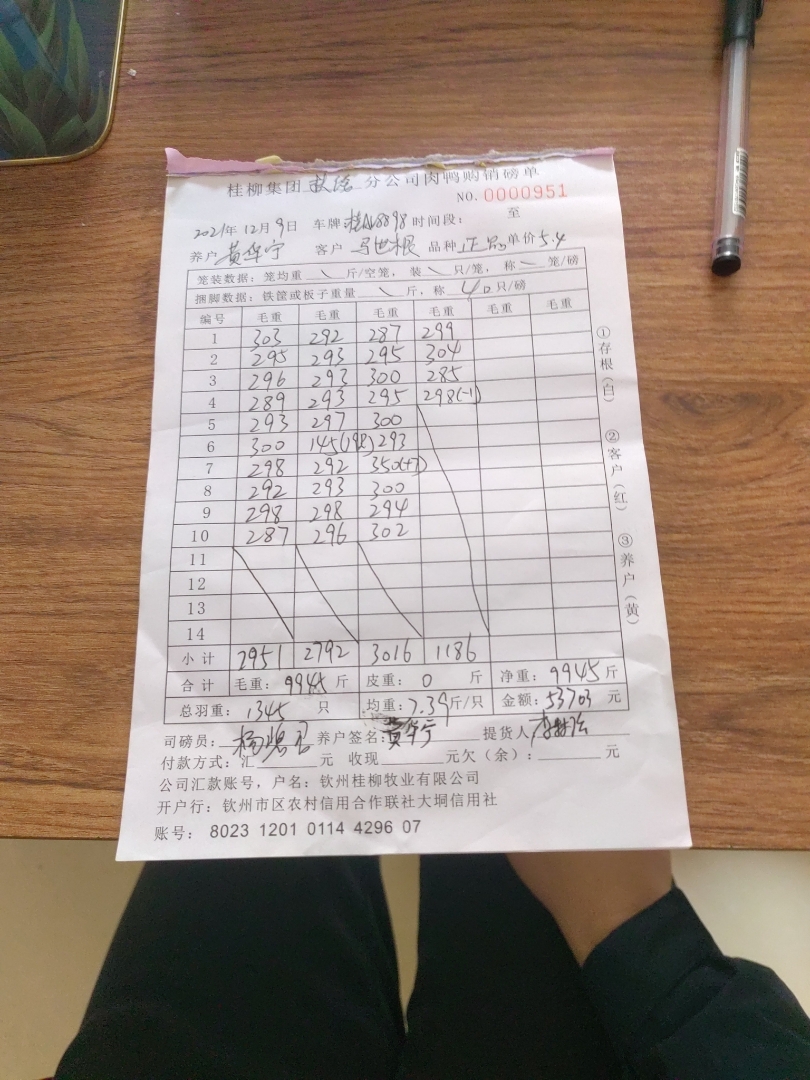 桂柳集团 分公司肉鸭购销磅单
NO. 0000951
2021年12月9日 车牌 桂N8898 时间段: 至
养户 黄华宁 客户 马世根 品种 正品 单价 5.4
笼装数据: 笼均重 \ 斤/空笼, 装 \ 只/笼, 称 \ 笼/磅
捆脚数据: 铁筐或板子重量 \ 斤, 称 40 只/磅
编号 毛重 毛重 毛重 毛重 毛重 毛重
1 303 292 287 299
2 295 293 295 304
3 296 293 300 285
4 289 293 295 298(-1)
5 293 297 300
6 300 145(198) 293
7 298 292 350(+7)
8 292 293 300
9 298 298 294
10 287 296 302
11
12
13
14
小计 2951 2792 3016 1186
合计 毛重: 9945 斤 皮重: 0 斤 净重: 9945 斤
总羽重: 1345 只 均重: 7.39 斤/只 金额: 53703 元
司磅员: 养户签名: 黄华宁 提货人
付款方式: 汇 元 收现 元欠(余): 元
公司汇款账号, 户名: 钦州桂柳牧业有限公司
开户行: 钦州市区农村信用合作联社大垌信用社
账号: 8023 1201 0114 4296 07
①存根(白) ②客户(红) ③养户(黄)